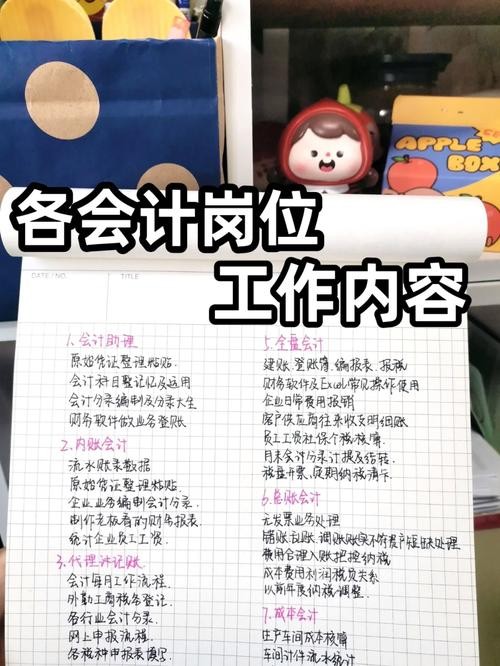 APPLE
BOX
各会计岗位
工作内容
DATE / NO.
TITLE
1.会计助理
原始凭证整理粘贴
会计科目整记忆及运用
会计分录编制及分录大全
财务软件做业务登账
2.内账会计
流水账录数据
原始凭证整理粘贴
企业业务编制会计分录
制作老板看的财务报表
统计企业员工工资
3.代理记账
会计每月工作流程
外勤工商税务登记
各行业会计分录
网上申报流程
各税种申报表填写
5.全盘会计
建账.登账簿.编报表.报税
财务软件及Excel常见操作使用
企业日常费用报销
客户供应商往来收支明细账
员工工资社保个税核算
月末会计分录计提及结转
税盘开票、定期纳税清卡
6.总账会计
无发票业务处理
费用合理入账把控纳税
成本费用利润税负关系
以前年度纳税调整
7.成本会计
生产车间成本核算
车间计件流水统计